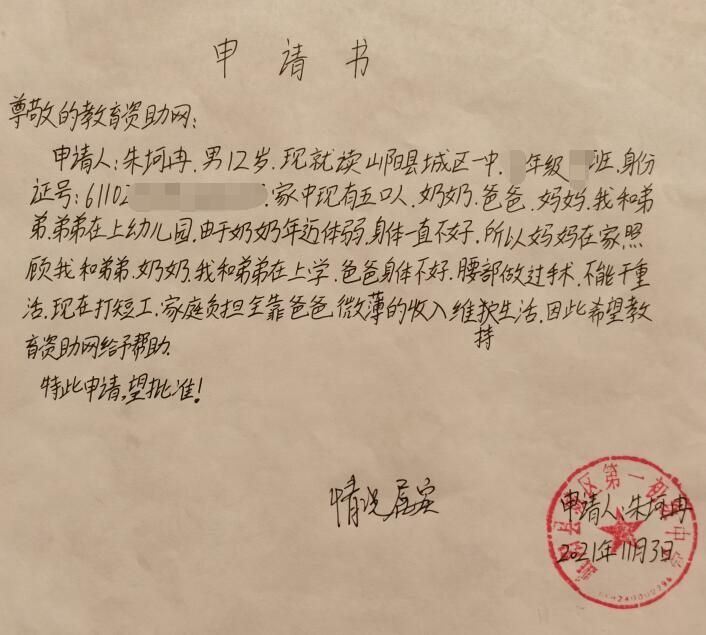 申请书
尊敬的教育资助网:
申请人:朱坷冉.男12岁.现就读山阳县城区一中. 年级 班.身份
证号:61102 家中现有五口人.奶奶.爸爸.妈妈.我和弟
弟.弟弟在上幼儿园.由于奶奶年迈体弱.身体一直不好.所以妈妈在家照
顾我和弟弟.奶奶.我和弟弟在上学.爸爸身体不好.腰部做过手术.不能干重
活.现在打短工.家庭负担全靠爸爸微薄的收入维持生活.因此希望教
育资助网给予帮助.
特此申请,望批准!
情况属实
申请人:朱坷冉
2021年11月3日
区第一初级中学